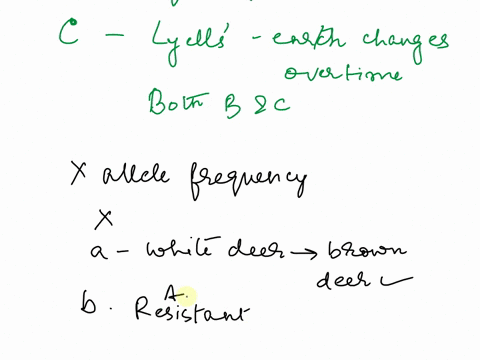 C - Lyells' - earth changes
overtime
Both B & C
X allele frequency
X
a - white deer → brown
deer ✓
A.
b. Resistant